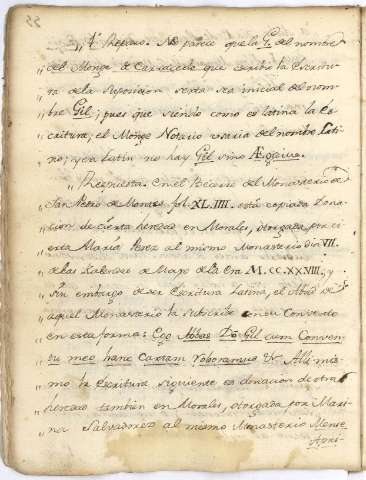 55
„ 4.º Reparo. No parece que la G. del nombre
„ del Monge de Carracedo que escribe la Escritu-
„ ra de la Suposicion sexta sea inicial del nom-
„ bre Gil; pues que siendo como es latina la Es-
„ critura, el Monge Notario usaria del nombre Lati-
„ no; y en Latin no hay Gil, sino Ægidius.
„ Respuesta. En el Becerro del Monasterio de
„ San Pedro de Montes, fol. XL.IIII. está copiada Dona-
„ cion de cierta heredad en Morales, otorgada por ci-
„ erta Maria Perez al mismo Monasterio dia VII.
„ de las Kalendas de Mayo de la Era M.CC.XXVIII, y
„ sin embargo de ser Escritura Latina, el Abad de
„ aquel Monasterio la subscribe con su Convento
„ en esta forma: Ego Abbas Dn. Gil cum Conven-
„ tu meo hanc Cartam roboramus &c. Alli mis-
„ mo la Escritura siguiente es donacion de otra
„ heredad tambien en Morales, otorgada por Mari-
„ na Salvadores al mismo Monasterio Mense
Apri-